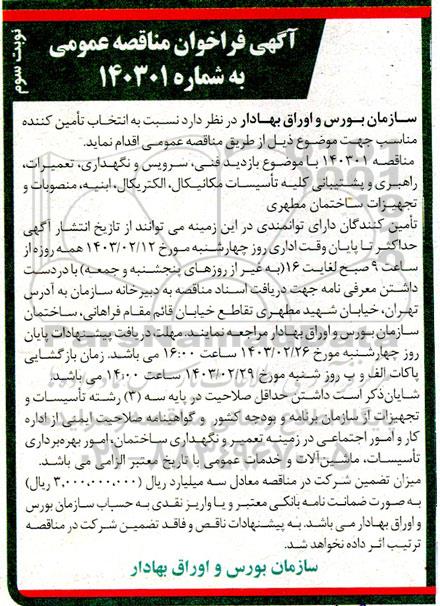 نوبت سوم
آگهی فراخوان مناقصه عمومی
به شماره ۱۴۰۳۰۱
سازمان بورس و اوراق بهادار در نظر دارد نسبت به انتخاب تأمین کننده
مناسب جهت موضوع ذیل از طریق مناقصه عمومی اقدام نماید.
مناقصه ۱۴۰۳۰۱ با موضوع بازدید فنی، سرویس و نگهداری، تعمیرات،
راهبری و پشتیبانی کلیه تأسیسات مکانیکال، الکتریکال، ابنیه، منصوبات و
تجهیزات ساختمان مطهری
تأمین کنندگان دارای توانمندی در این زمینه می توانند از تاریخ انتشار آگهی
حداکثر تا پایان وقت اداری روز چهارشنبه مورخ ۱۴۰۳/۰۲/۱۲ همه روزه از
ساعت ۹ صبح لغایت ۱۶(به غیر از روزهای پنجشنبه و جمعه) با در دست
داشتن معرفی نامه جهت دریافت اسناد مناقصه به دبیرخانه سازمان به آدرس
تهران، خیابان شهید مطهری تقاطع خیابان قائم مقام فراهانی، ساختمان
سازمان بورس و اوراق بهادار مراجعه نمایند. مهلت دریافت پیشنهادات پایان
روز چهارشنبه مورخ ۱۴۰۳/۰۲/۲۶ ساعت ۱۶:۰۰ می باشد. زمان بازگشایی
پاکات الف و ب روز شنبه مورخ ۱۴۰۳/۰۲/۲۹ ساعت ۱۴:۰۰ می باشد.
شایان ذکر است داشتن حداقل صلاحیت در پایه سه (۳) رشته تأسیسات و
تجهیزات از سازمان برنامه و بودجه کشور و گواهینامه صلاحیت ایمنی از اداره
کار و امور اجتماعی در زمینه تعمیر و نگهداری ساختمان، امور بهره‌برداری
تأسیسات، ماشین آلات و خدمات عمومی با تاریخ معتبر الزامی می باشد.
میزان تضمین شرکت در مناقصه معادل سه میلیارد ریال (۳.۰۰۰.۰۰۰.۰۰۰ ریال)
به صورت ضمانت نامه بانکی معتبر و یا واریز نقدی به حساب سازمان بورس
و اوراق بهادار می باشد. به پیشنهادات ناقص و فاقد تضمین شرکت در مناقصه
ترتیب اثر داده نخواهد شد.
سازمان بورس و اوراق بهادار